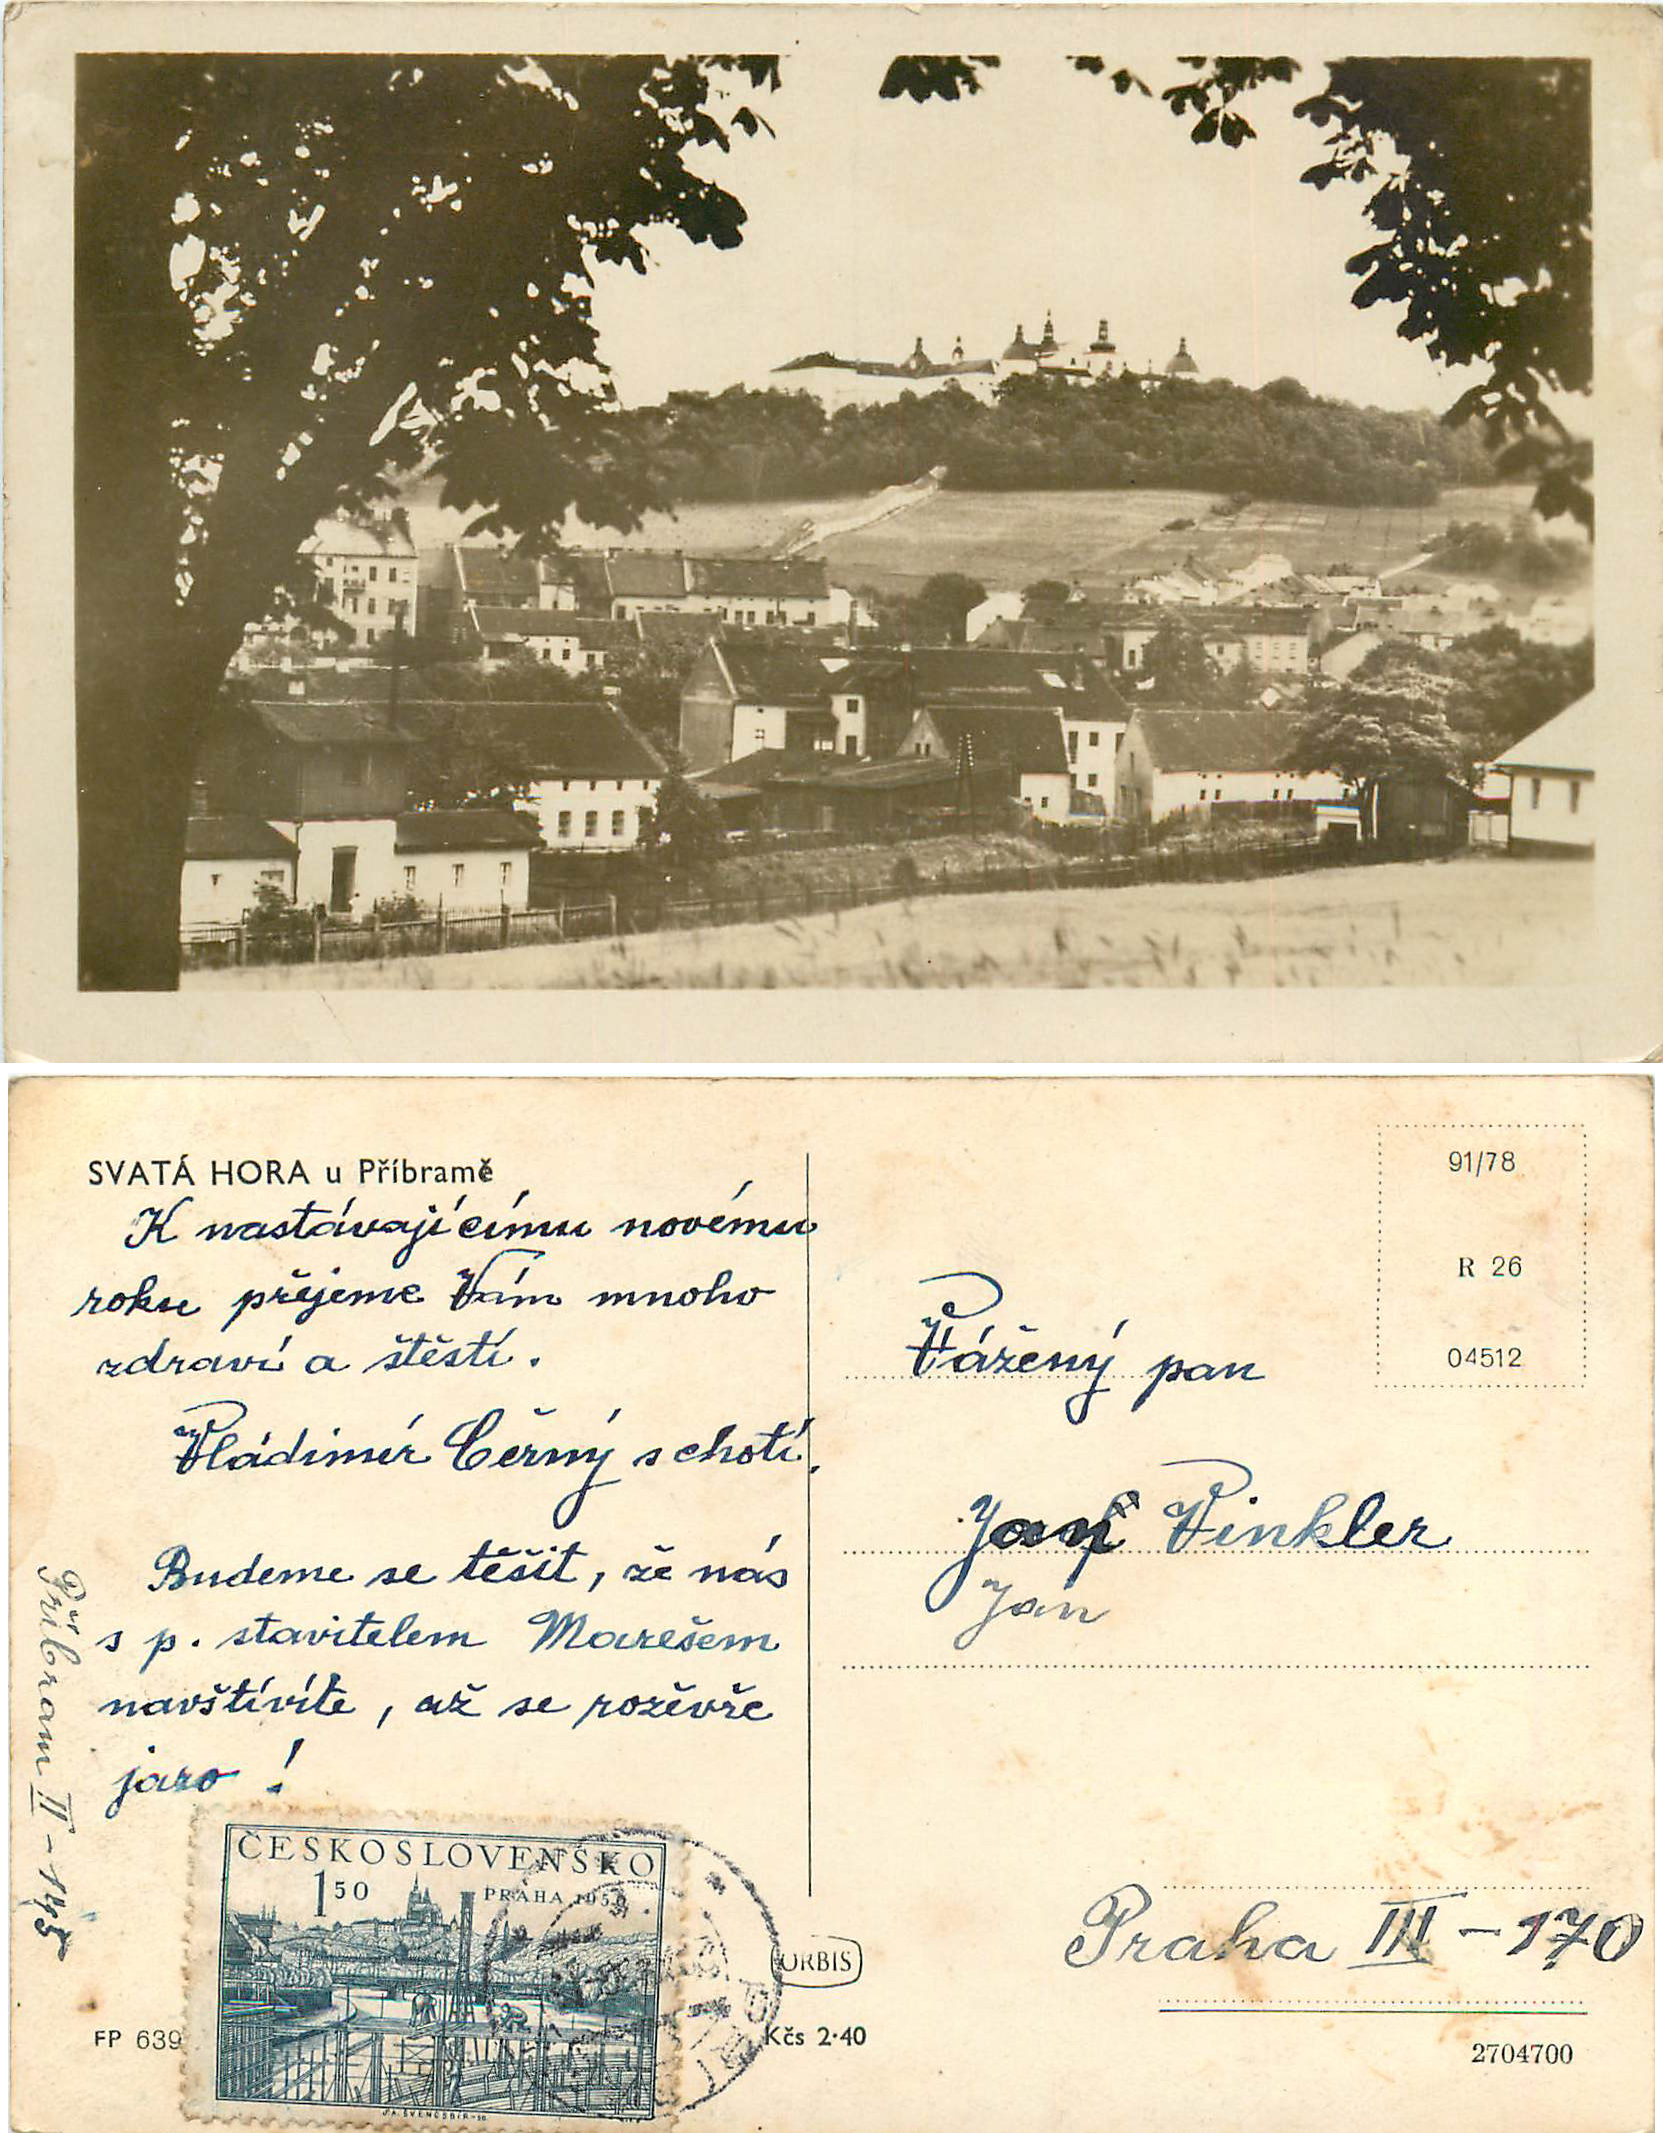 SVATÁ HORA u Příbramě
K nastávajícímu novému
roku přejeme Vám mnoho
zdraví a štěstí.
Vládimír Černý s chotí.
Budeme se těšit, že nás
s p. stavitelem Marešem
navštívíte, až se rozevře
jaro !
Příbram II - 145
ČESKOSLOVENSKO
1 50
PRAHA 1950
J.A. ŠVENGSBÍR - 50
FP 639
ORBIS
Kčs 2·40
91/78
R 26
04512
Vážený pan
Jan Vinkler
Jan
Praha III - 170
2704700